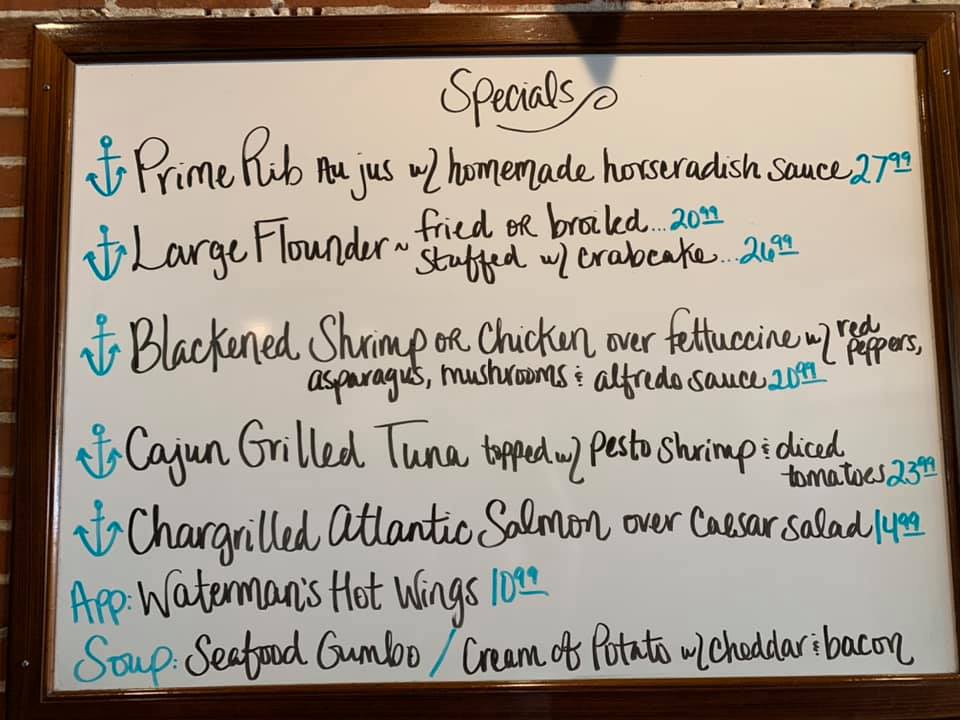 Specials
Prime Rib Au jus w/ homemade horseradish sauce 27.99
Large Flounder ~ fried or broiled... 20.99
stuffed w/ crabcake... 26.99
Blackened Shrimp or Chicken over fettuccine w/ red peppers,
asparagus, mushrooms & alfredo sauce 20.99
Cajun Grilled Tuna topped w/ pesto shrimp & diced
tomatoes 23.99
Chargrilled Atlantic Salmon over Caesar salad 14.99
App: Waterman's Hot Wings 10.99
Soup: Seafood Gumbo / Cream of Potato w/ cheddar & bacon